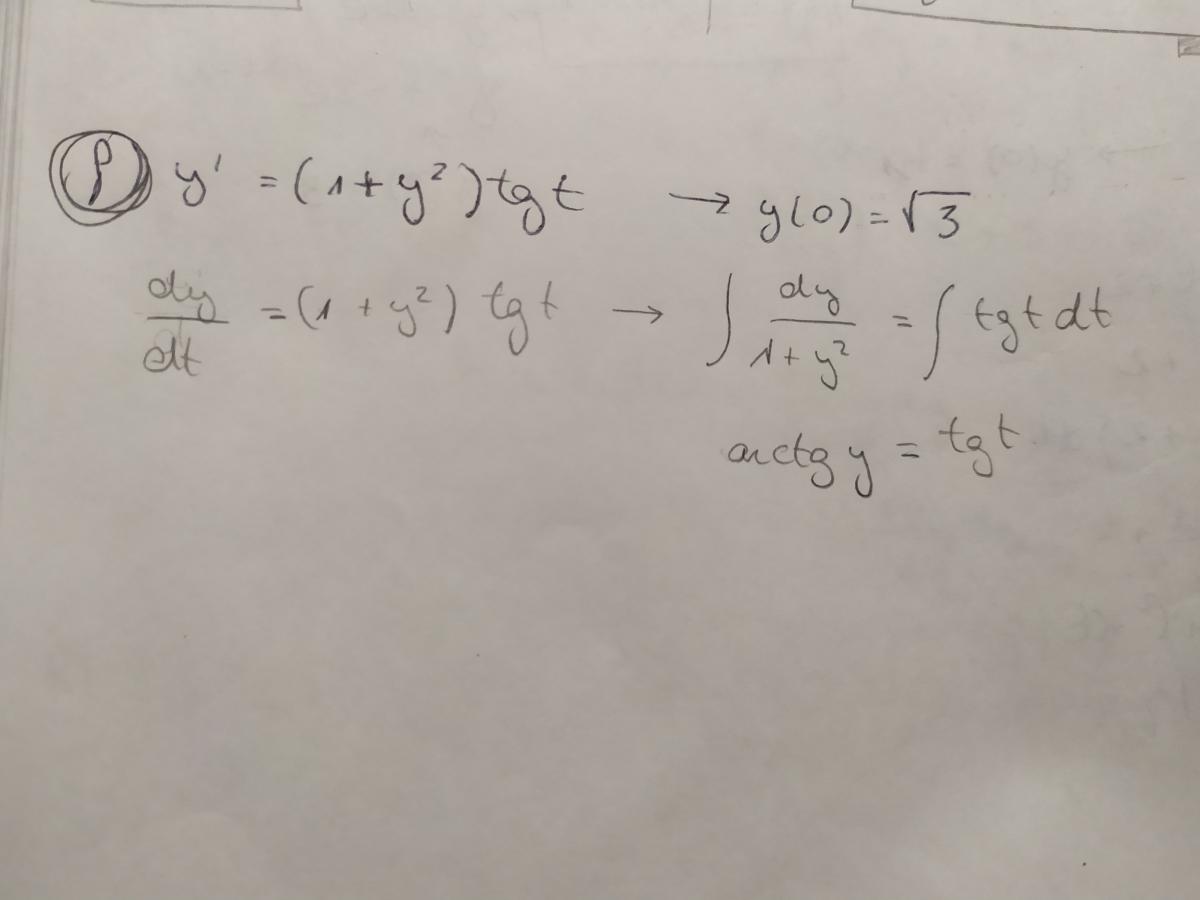 ρ y' = (1+y²) tg t → y(0) = √3
dy/dt = (1 + y²) tg t → ∫ dy/(1+y²) = ∫ tg t dt
arctg y = tg t